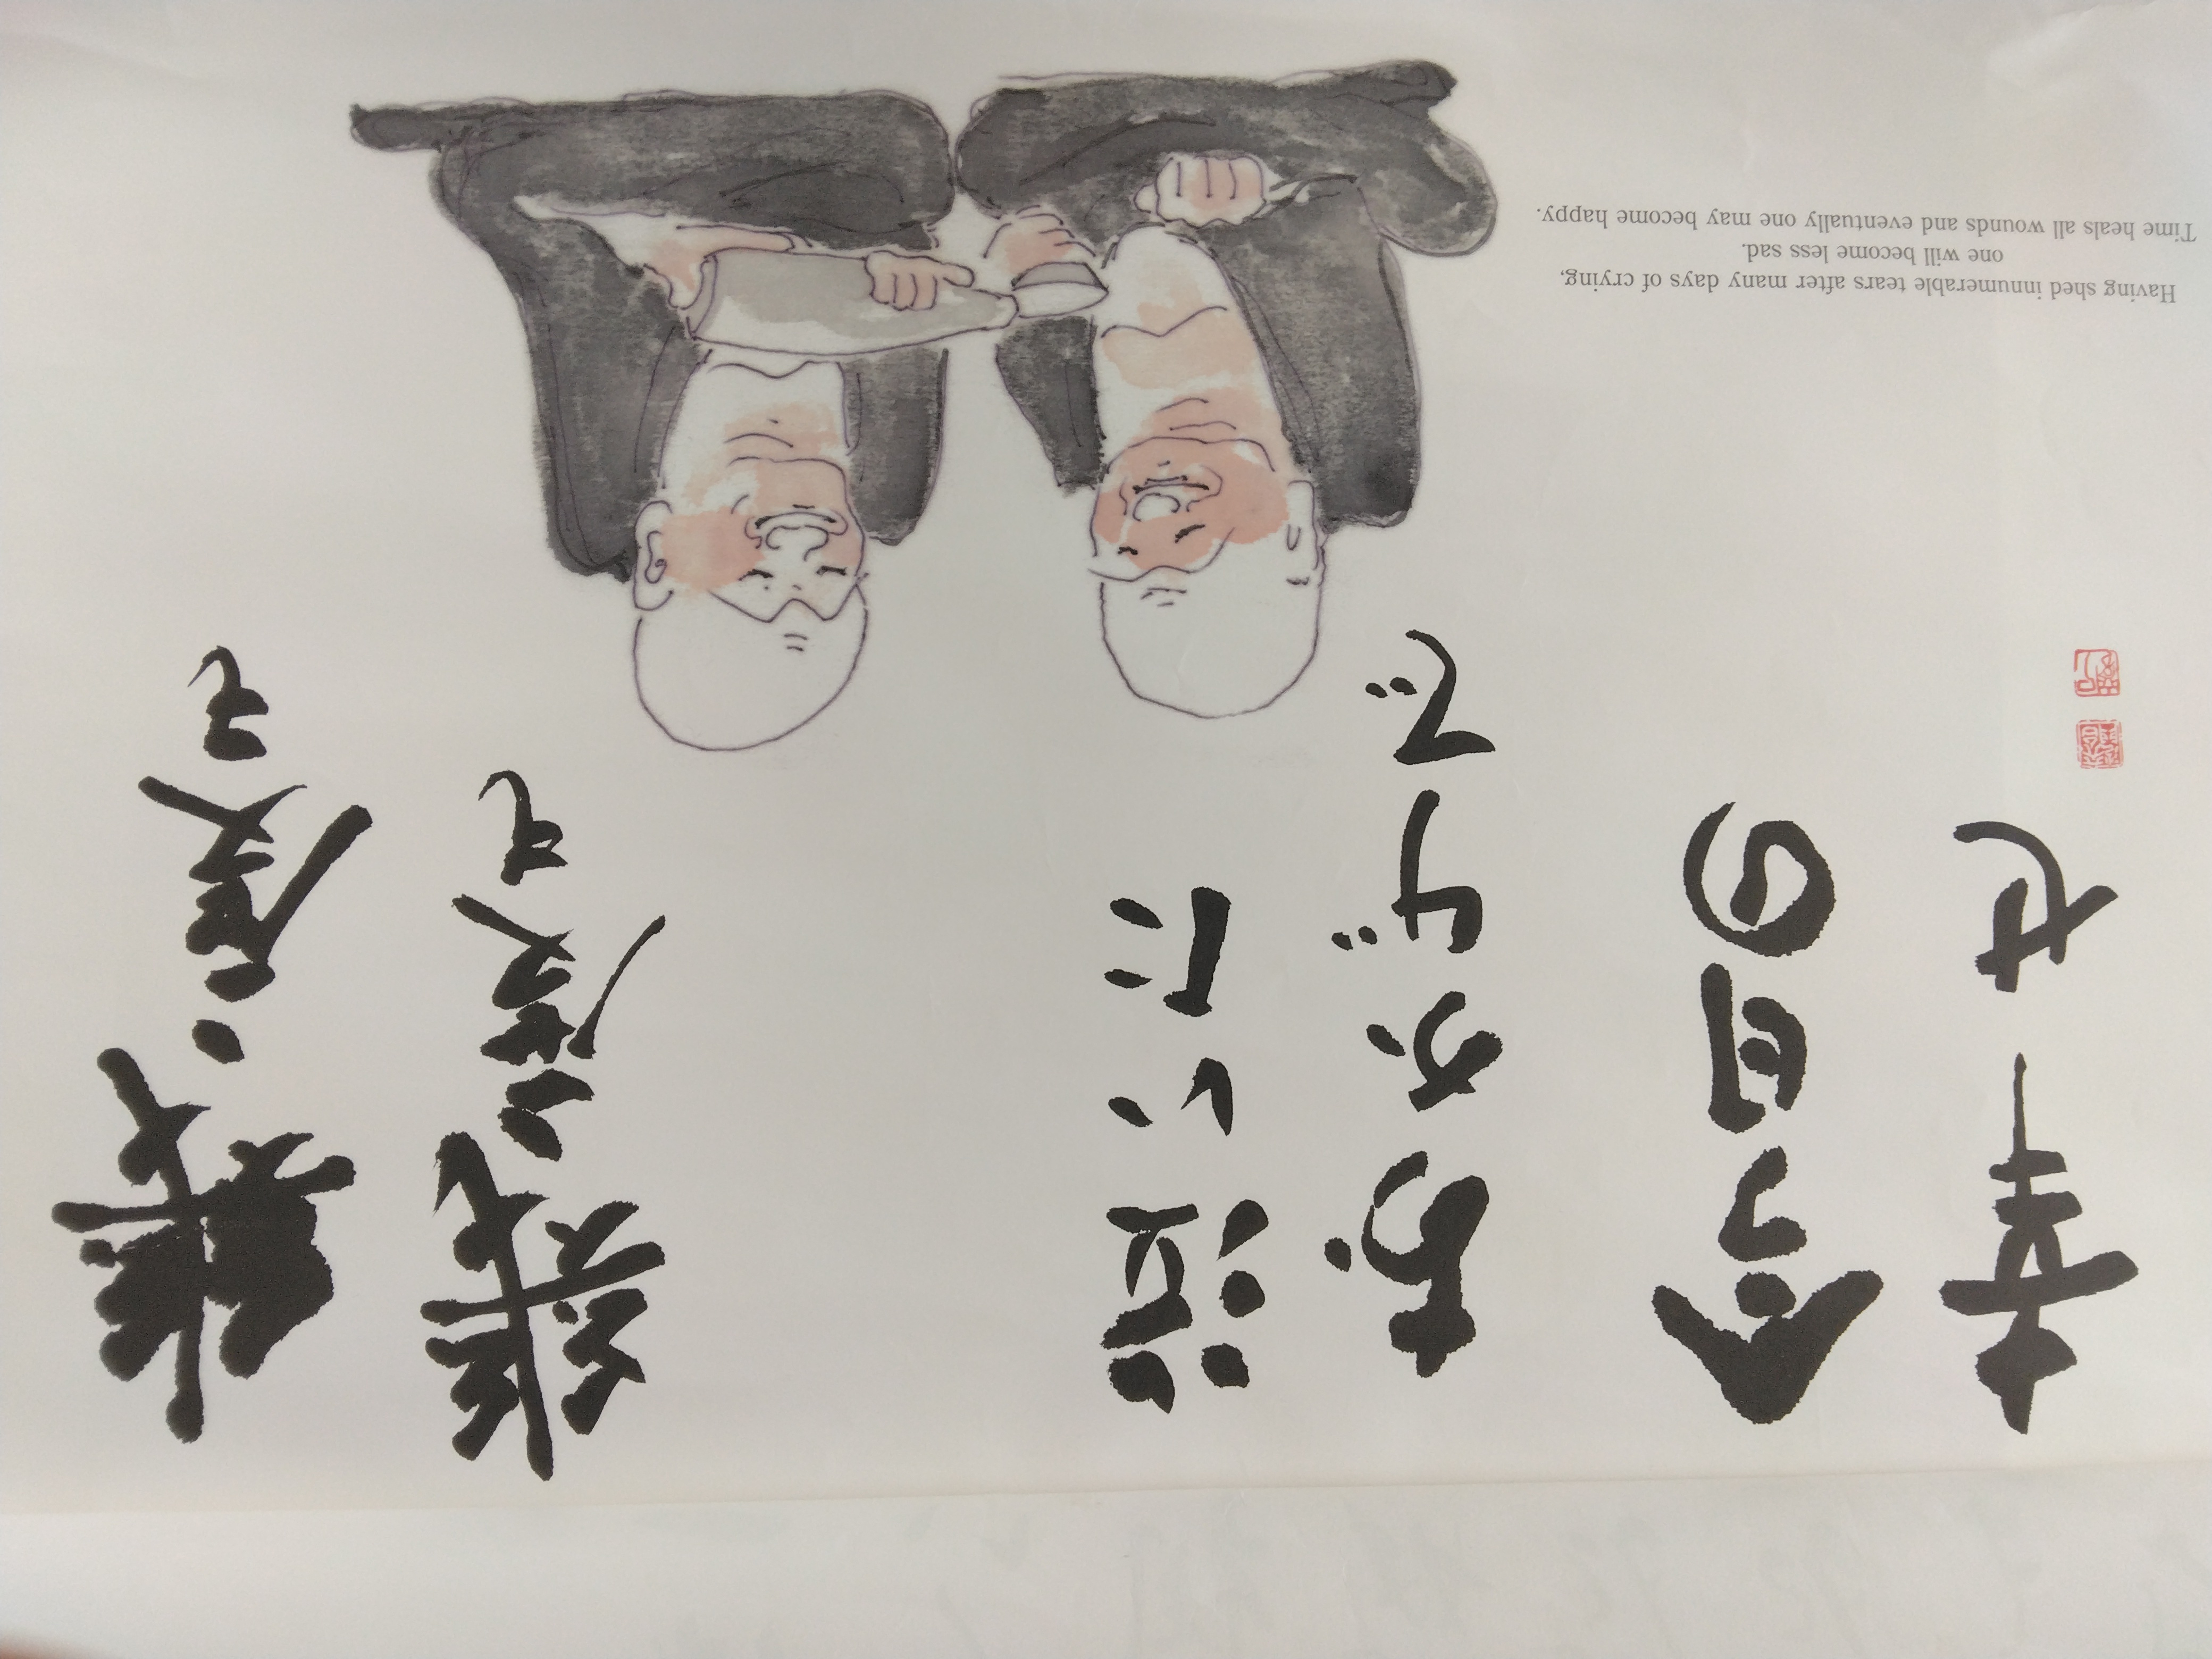 幾度も
幾度も
泣いた
おかげで
今日の
幸せ
Having shed innumerable tears after many days of crying,
one will become less sad.
Time heals all wounds and eventually one may become happy.